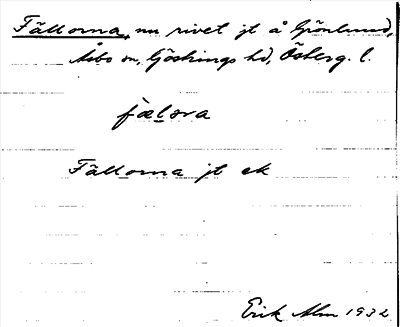 Fällorna, nu rivet jt å Grönlund,
Åsbo sn, Göstrings hd, Österg. l.
fælɔra
Fällorna jt ek
Erik Alm 1932